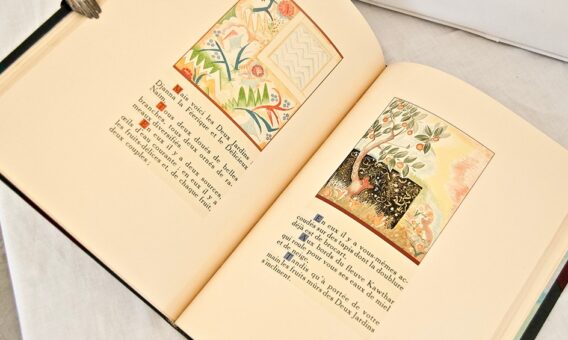 Mais voici les Deux Jardins :
Djanna la Féerique et le Délicieux
Naïm.
Tous deux doués de belles
branches, tous deux ornés de ra-
meaux diversifiés.
En eux il y a deux sources,
œils d'eau courante : en eux il y a
les fruits-délices et, de chaque fruit,
deux couples ;
En eux il y a vous-mêmes ac-
coudés sur des tapis dont la doublure
déjà est de brocart,
Aux bords du fleuve Kawthar
qui roule pour vous ses eaux de miel
et de neige.
Tandis qu'à portée de votre
main les fruits mûrs des Deux Jardins
s'inclinent.